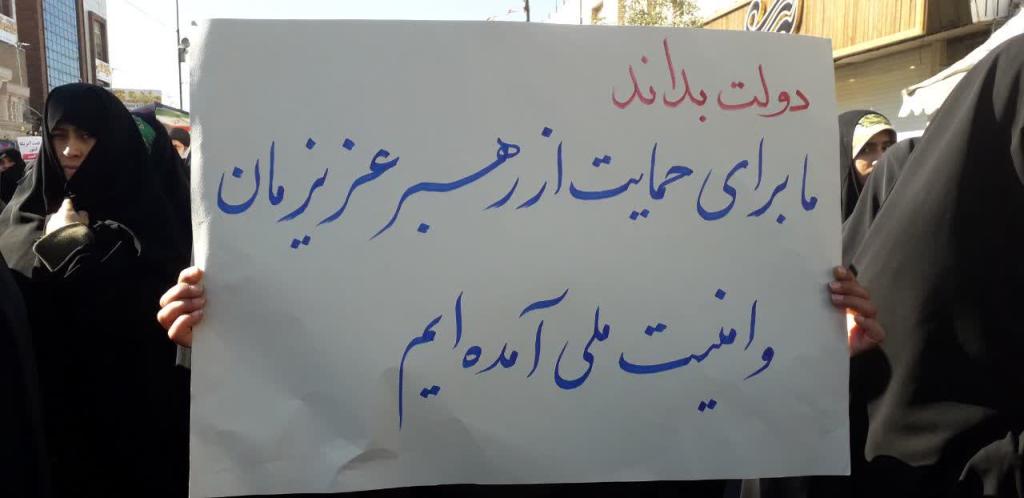 دولت بداند
ما برای حمایت از رهبر عزیزمان
و امنیت ملی آمده ایم